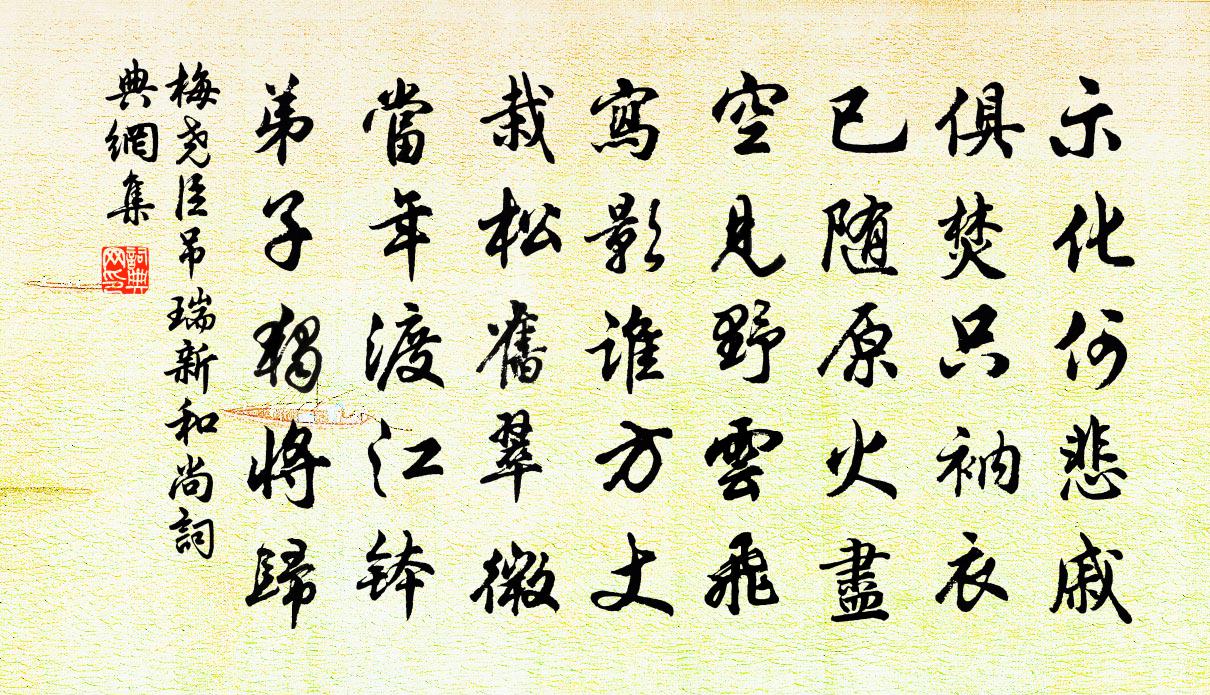 示化何悲戚
俱焚只衲衣
已随原火盡
空見野雲飛
寫影誰方丈
栽松舊翠微
當年渡江鉢
弟子獨將歸
梅堯臣吊瑞新和尚詞
典網集
詞典网印